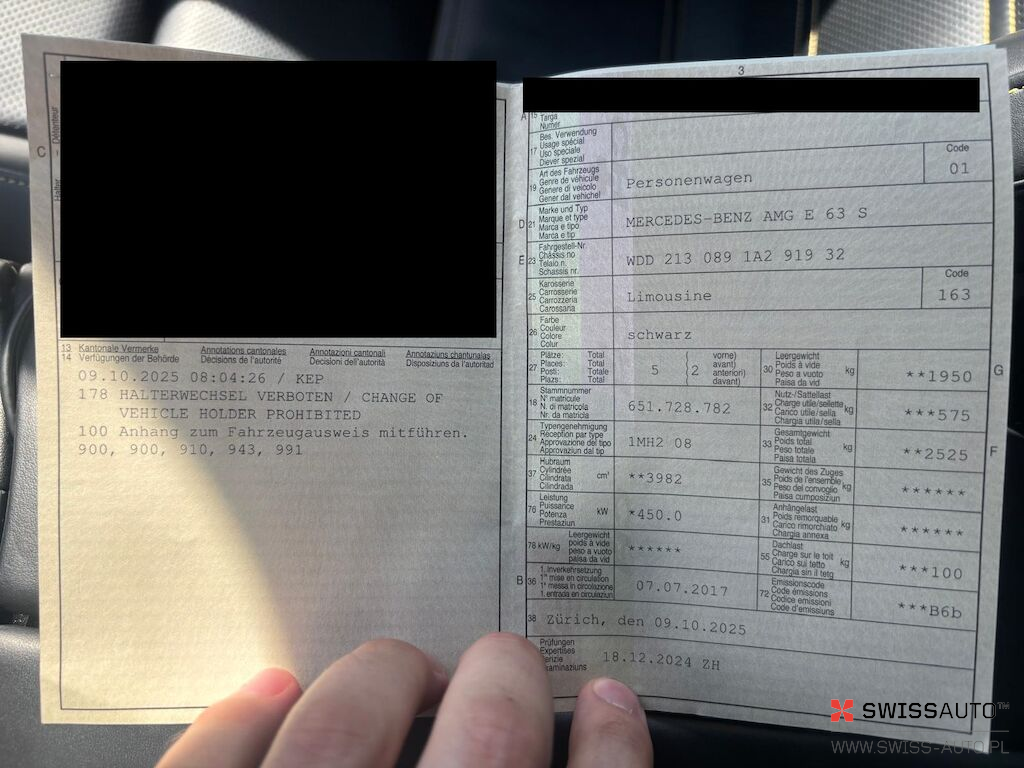 3
C
Halter - Détenteur
13 Kantonale Vermerke Annotations cantonales Annotazioni cantonali Annotaziuns chantunalas
14 Verfügungen der Behörde Décisions de l'autorité Decisioni dell'autorità Disposiziuns da l'autoritad
09.10.2025 08:04:26 / KEP
178 HALTERWECHSEL VERBOTEN / CHANGE OF
VEHICLE HOLDER PROHIBITED
100 Anhang zum Fahrzeugausweis mitführen.
900, 900, 910, 943, 991
A 15
Targa
Numer
17 Bes. Verwendung
Usage spécial
Uso speciale
Diever spezial
Code
01
19 Art des Fahrzeugs
Genre de véhicule
Genere di veicolo
Gener dal vehichel
Personenwagen
D 21 Marke und Typ
Marque et type
Marca e tipo
Marca e tip
MERCEDES-BENZ AMG E 63 S
E 23 Fahrgestell-Nr.
Châssis no
Telaio n.
Schassis nr.
WDD 213 089 1A2 919 32
25 Karosserie
Carrosserie
Carrozzeria
Carossaria
Limousine
Code
163
26 Farbe
Couleur
Colore
Colur
schwarz
27 Plätze: Total
Places: Total
Posti: Totale
Plazs: Total
5 ( 2 vorne)
avant)
anteriori)
davant)
30 Leergewicht
Poids à vide
Peso a vuoto
Paisa da vid
kg
**1950
G
18 Stammnummer
N° matricule
N. di matricola
Nr. da matricla
651.728.782
32 Nutz-/Sattellast
Charge utile/sellette
Carico utile/sella
Chargia utila/sella
kg
***575
24 Typengenehmigung
Réception par type
Approvazione del tipo
Approvaziun dal tip
1MH2 08
33 Gesamtgewicht
Poids total
Peso totale
Paisa totala
kg
**2525
F
37 Hubraum
Cylindrée
Cilindrata
Cilindrada
cm³
**3982
35 Gewicht des Zuges
Poids de l'ensemble
Peso del convoglio
Paisa cumposiziun
kg
******
76 Leistung
Puissance
Potenza
Prestaziun
kW
*450.0
31 Anhängelast
Poids remorquable
Carico rimorchiato
Chargia annexa
kg
******
78 kW/kg Leergewicht
poids à vide
peso a vuoto
paisa da vid
******
55 Dachlast
Charge sur le toit
Carico sul tetto
Chargia sin il tetg
kg
***100
B 36 1. Inverkehrsetzung
1re mise en circulation
1a messa in circolazione
1. entrada en circulaziun
07.07.2017
72 Emissionscode
Code émissions
Codice emissioni
Code d'emissiuns
***B6b
38 Zürich, den 09.10.2025
Prüfungen
Expertises
18.12.2024 ZH
SWISSAUTO™
WWW.SWISS-AUTO.PL